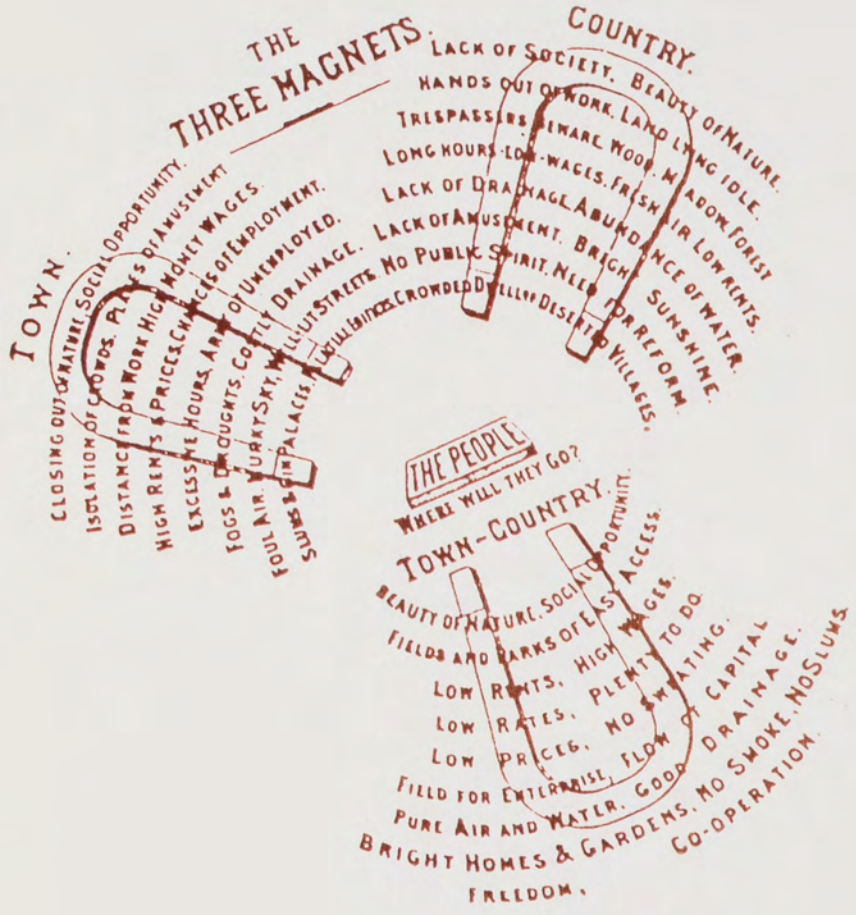 THE
THREE MAGNETS.
TOWN.
CLOSING OUT OF NATURE. SOCIAL OPPORTUNITY.
ISOLATION OF CROWDS. PLACES OF AMUSEMENT
DISTANCE FROM WORK HIGH MONEY WAGES.
HIGH RENTS & PRICES. CHANCES OF EMPLOYMENT.
EXCESSIVE HOURS. ARMY OF UNEMPLOYED.
FOGS & DROUGHTS. COSTLY DRAINAGE.
FOUL AIR. MURKY SKY. WELL-LIT STREETS.
SLUMS & GIN PALACES.
COUNTRY.
LACK OF SOCIETY. BEAUTY OF NATURE.
HANDS OUT OF WORK. LAND LYING IDLE.
TRESPASSERS BEWARE. WOOD, MEADOW, FOREST
LONG HOURS-LOW-WAGES. FRESH AIR LOW RENTS.
LACK OF DRAINAGE. ABUNDANCE OF WATER.
LACK OF AMUSEMENT. BRIGHT SUNSHINE.
NO PUBLIC SPIRIT. NEED FOR REFORM.
CROWDED DWELLGS DESERTED VILLAGES.
THE PEOPLE
WHERE WILL THEY GO?
TOWN-COUNTRY.
BEAUTY OF NATURE. SOCIAL OPPORTUNITY.
FIELDS AND PARKS OF EASY ACCESS.
LOW RENTS, HIGH WAGES.
LOW RATES, PLENTY TO DO.
LOW PRICES, NO SWEATING.
FIELD FOR ENTERPRISE, FLOW OF CAPITAL
PURE AIR AND WATER, GOOD DRAINAGE.
BRIGHT HOMES & GARDENS, NO SMOKE, NO SLUMS.
FREEDOM. CO-OPERATION.